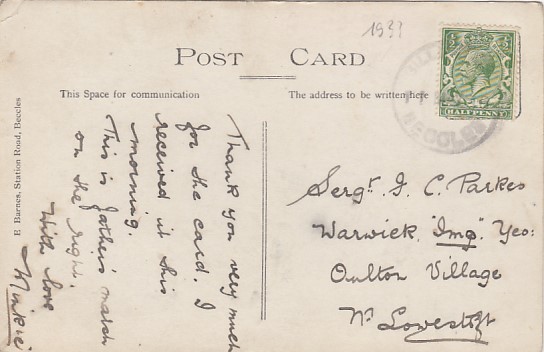 1933
POST CARD
This Space for communication
The address to be written here
E Barnes, Station Road, Beccles
HALFPENNY
BECCLES
Thank you very much
for the card. I
received it this
morning.
This is father's march
on the right.
With love
Sergt. J. C. Parkes
Warwick. "Imp". Yeo:
Oulton Village
Nr Lowestoft